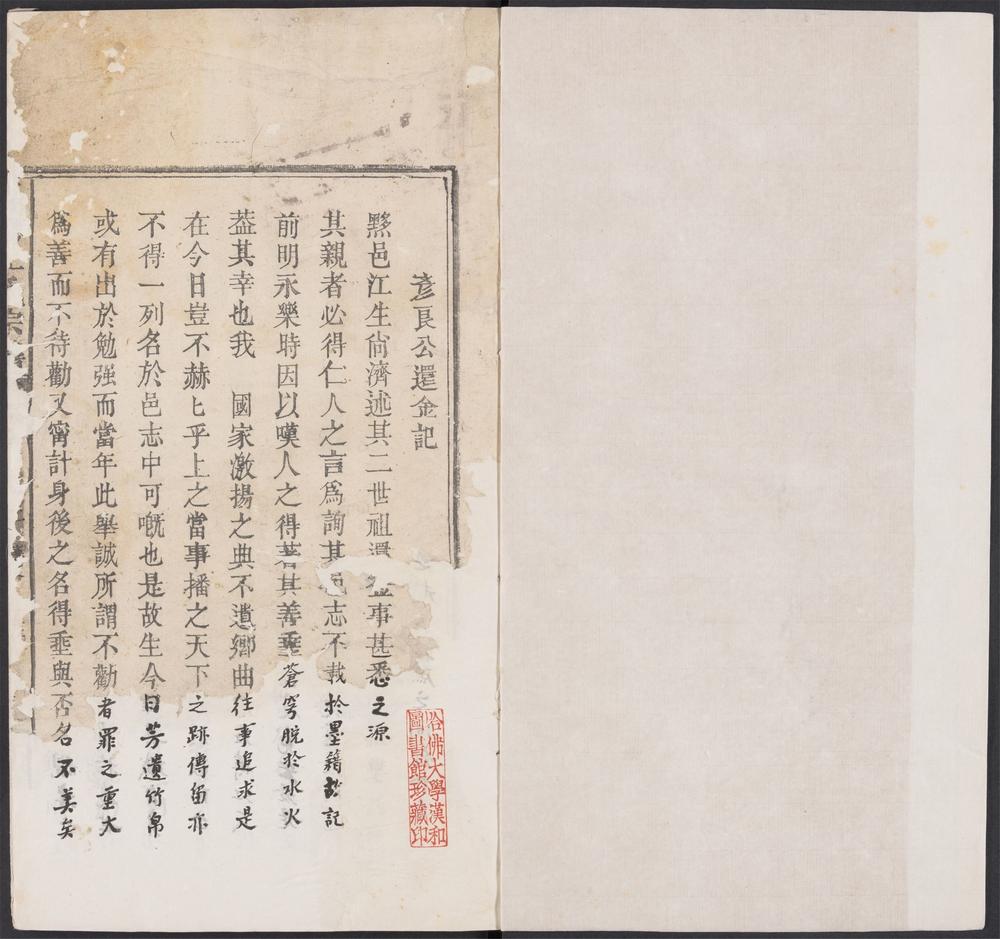 彥良公還金記
黟邑江生尙濟述其二世祖還金事甚悉之源
其親者必得仁人之言爲詢其邑志不載於墨籍記
前明永樂時因以嘆人之得著其善垂蒼穹脫於水火
葢其幸也我 國家激揚之典不遺鄉曲往事追求是
在今日豈不赫匕乎上之當事播之天下之跡傳留亦
不得一列名於邑志中可嘅也是故生今日芳遺竹帛
或有出於勉强而當年此舉誠所謂不勸者罪之重大
爲善而不待勸又甯計身後之名得垂與否名不美矣
哈佛大學漢和
圖書館珍藏印
宗